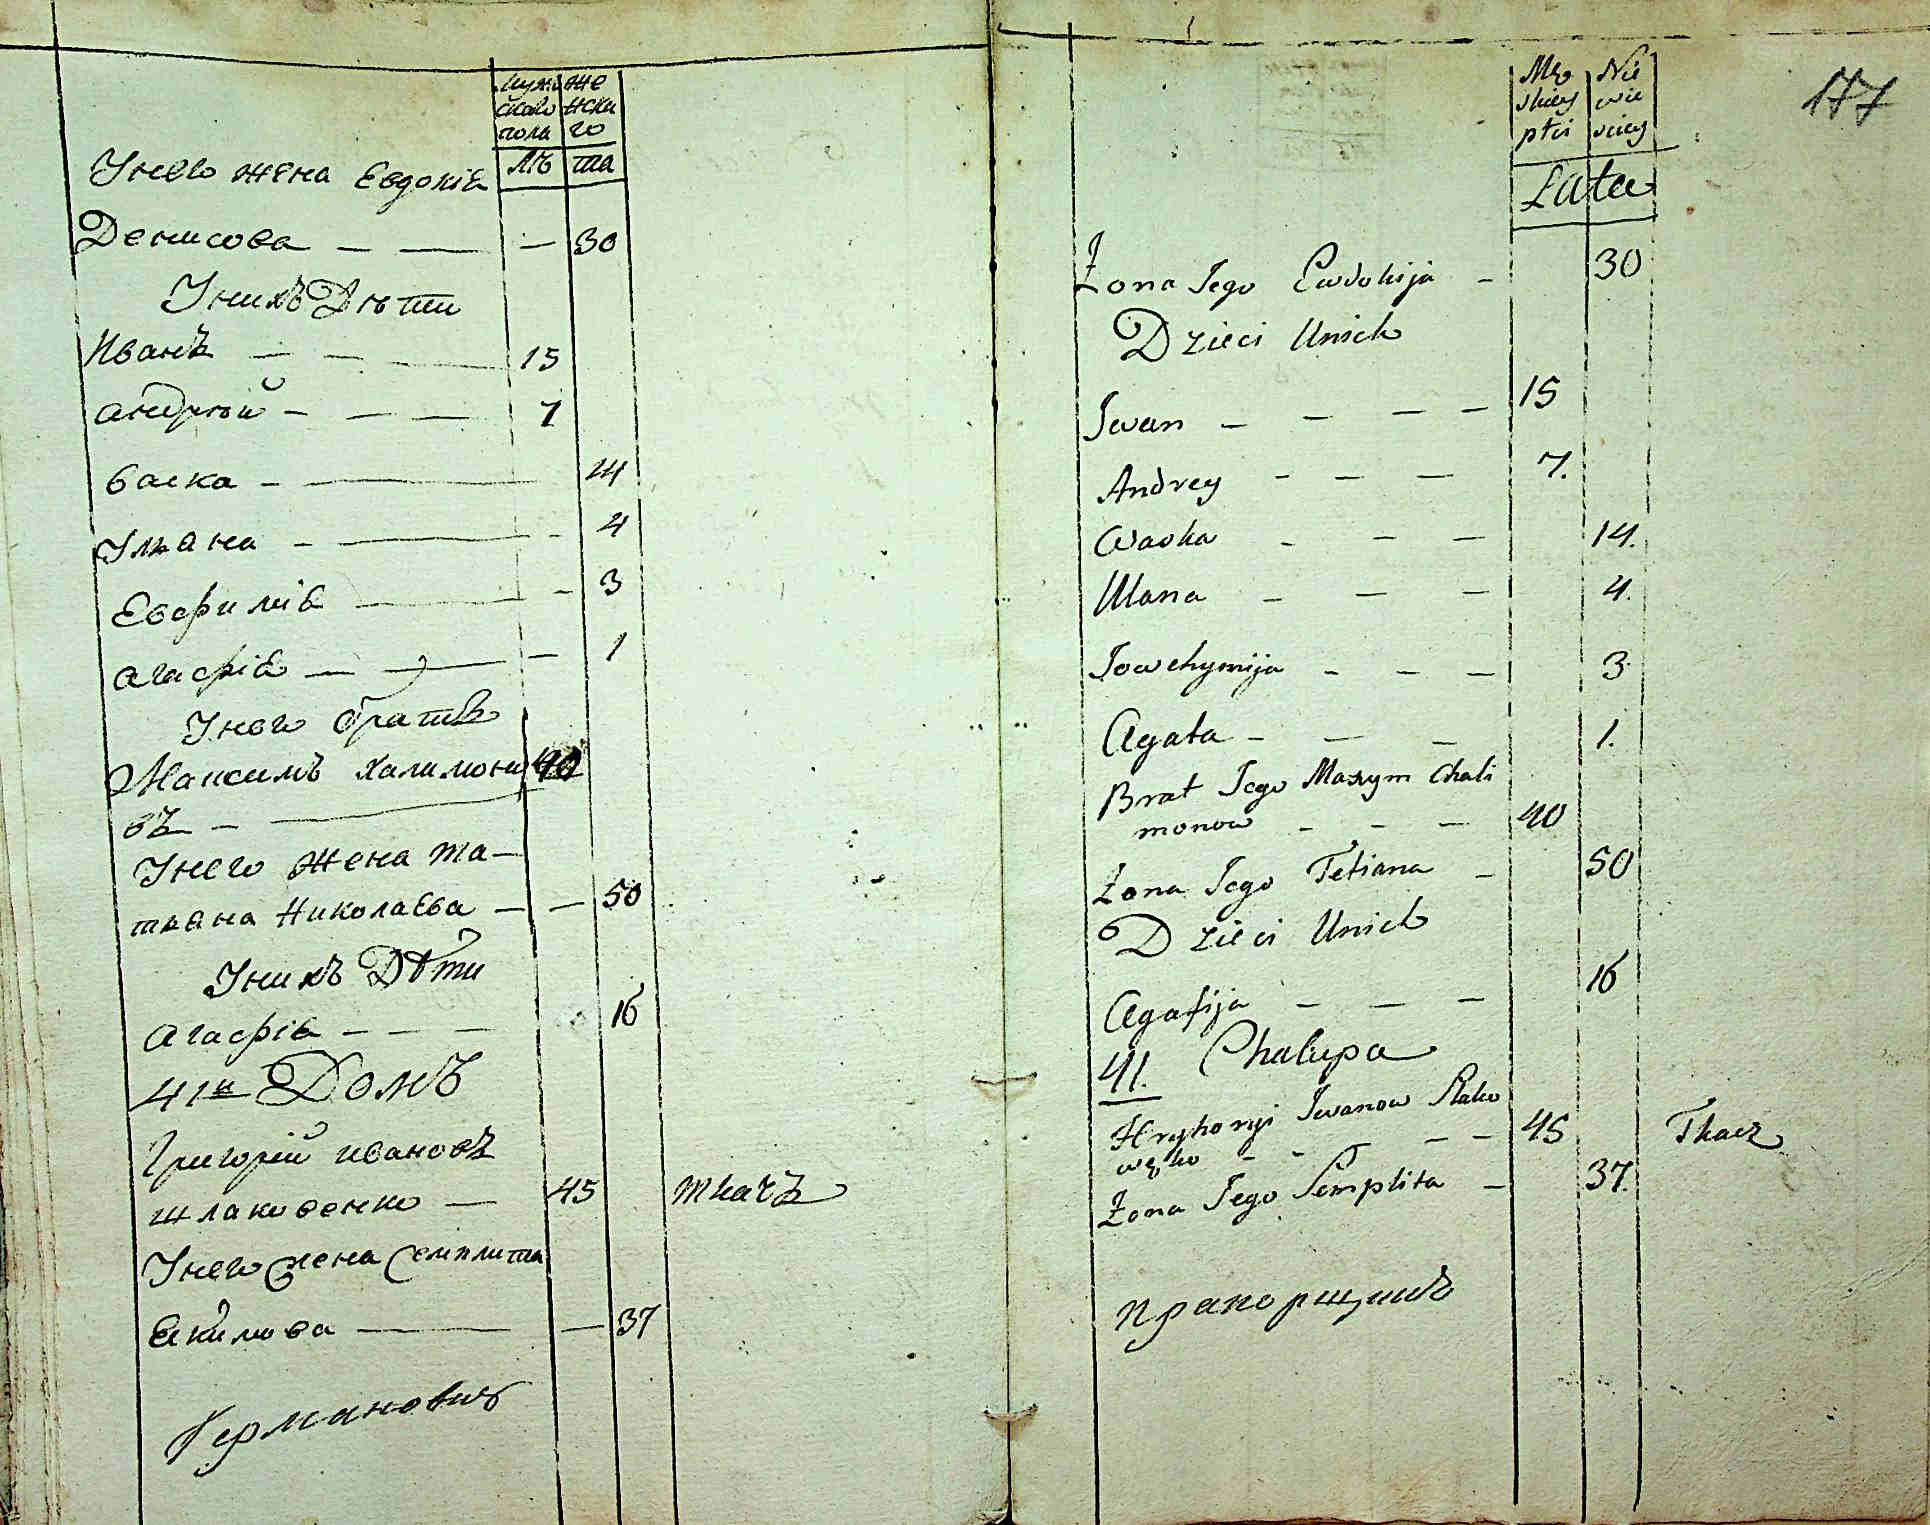 Муж Же
скаго нска
пола го
Лѣ та
У него жена Евдокіѣ
Денисова — — — 30
У нихъ Дѣти
Иванъ — — — 15
андрѣй — — — 7
васка — — 14
Улѣана — — — 4
Евфиміѣ — — 3
агафіѣ — — — 1
У него братъ
Максимъ халимоно 40
въ — —
У него жена та—
тѣана Николаева — — 50
У нихъ Дѣти
агафіѣ — — — 16
41й Домъ
Григорій ивановъ
шлаковенко — 45 ткачъ
У него жена Семплита
Екимова — — 37
Германовичъ
177
Mę Nie
skiey wie
płci sciey
Lata
Żona Jego Ewdokija — 30
Dzieci Unich
Iwan — — — — 15
Andrey — — — 7.
Waska — — — 14.
Ulana — — — 4.
Jowchymija — — — 3
Agata — — — 1.
Brat Jego Maxym Chali
monow — — — 40
Żona Jego Tetiana — 50
Dzieci Unich
Agafija — — — 16
41. Chalupa
Hryhoryi Iwanow Szlako
węko — — — — 45 Tkacz
Żona Jego Semplita — 37.
прапорщикъ